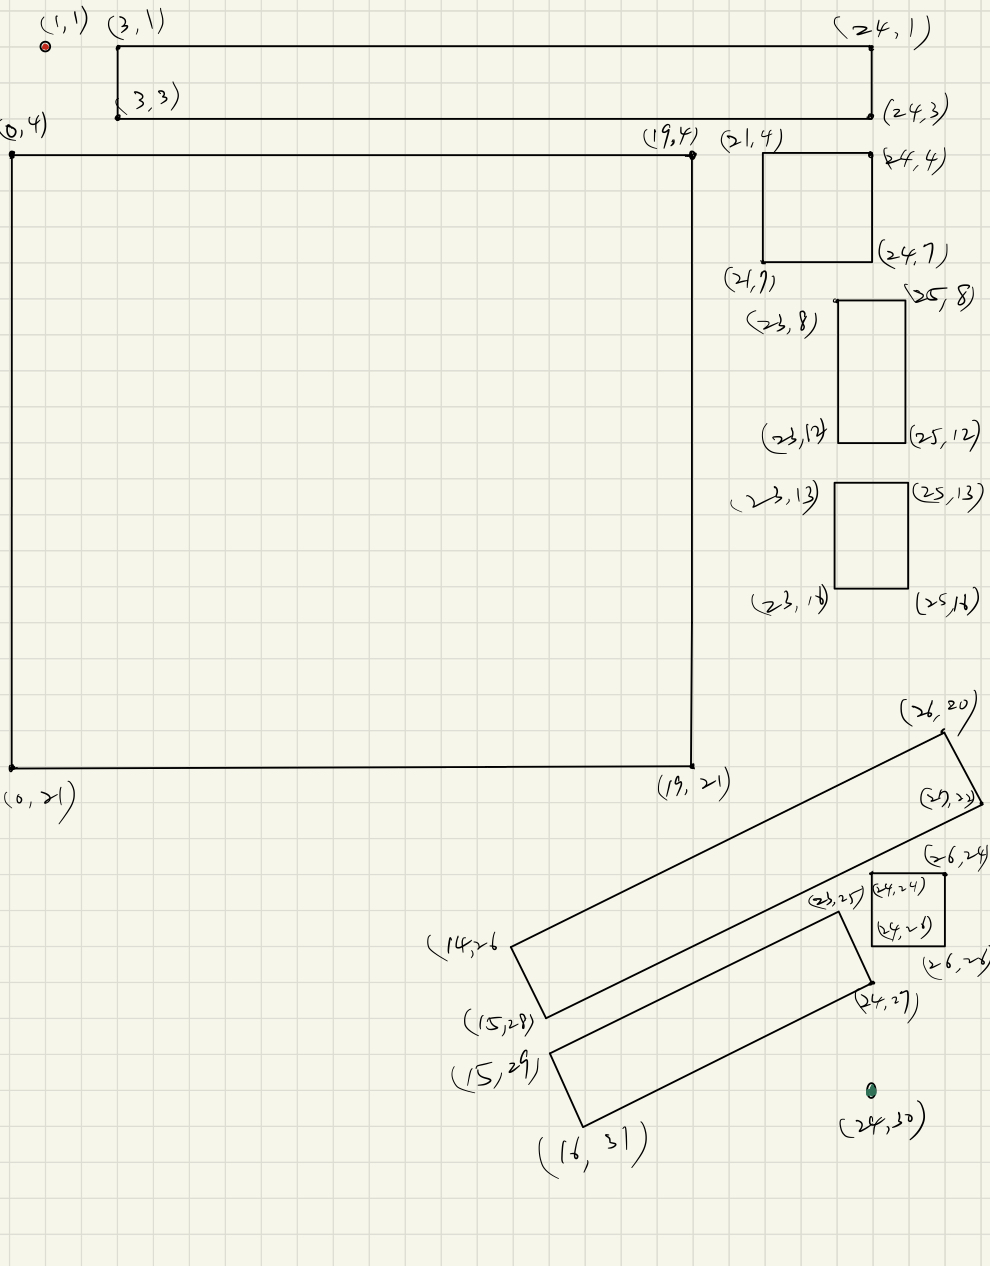 (1,1)
(3,1)
(24,1)
(3,3)
(24,3)
(0,4)
(19,4)
(21,4)
(24,4)
(24,7)
(21,7)
(25,8)
(23,8)
(23,12)
(25,12)
(23,13)
(25,13)
(23,16)
(25,16)
(26,20)
(0,21)
(19,21)
(27,22)
(26,24)
(24,24)
(23,25)
(24,26)
(14,26
(26,26)
(24,27)
(15,28)
(15,29)
(24,30)
(16,31)